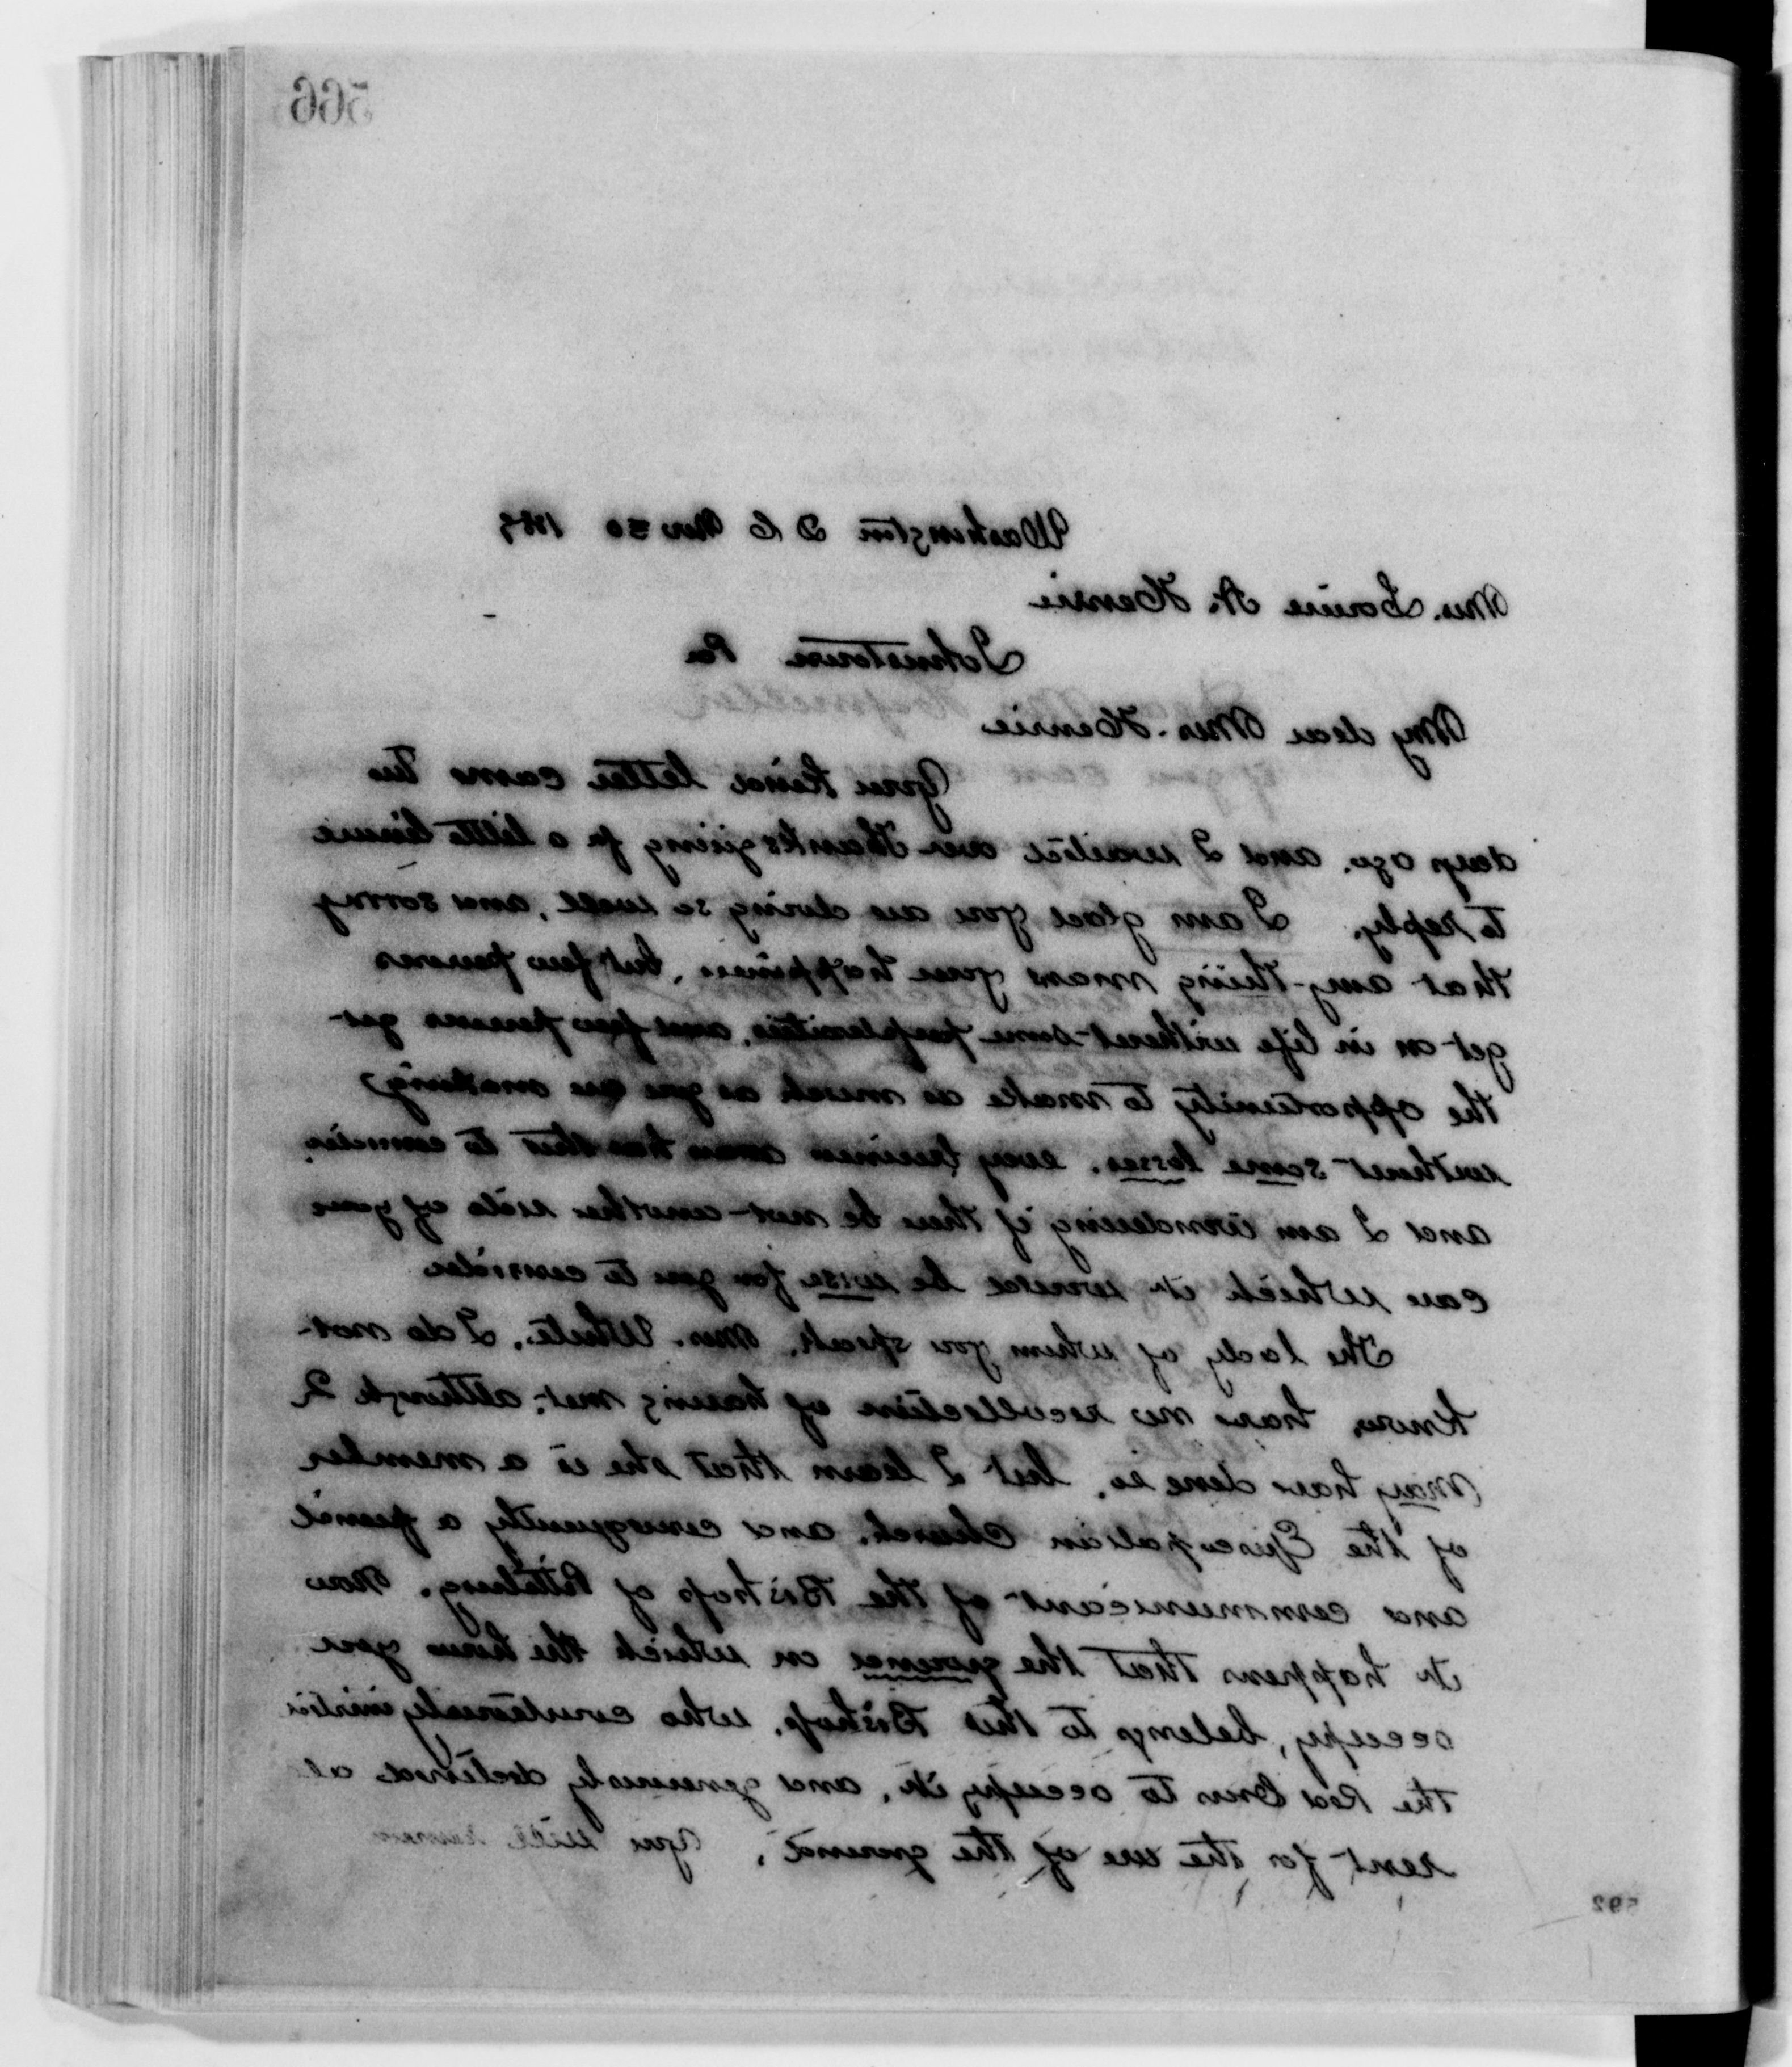 566
Washington D C Nov 30 1889
Mrs. Louise A. Hensie
Johnstown Pa
My dear Mrs. Hensie
Your kind letter came two
days ago. and I waited over Thanksgiving for a little leisure
to reply. I am glad you are doing so well, and sorry
that any-thing mars your happiness, but few persons
get on in life without some perplexities, and few persons get
the opportunity to make as much as you are making
without some losses. every business man has that to consider.
and I am wondering if there be not another side of your
case which it would be wise for you to consider
The lady of whom you speak, Mrs. White, I do not
know, have no recollection of having met, although I
may have done so, but I learn that she is a member
of the Episcopalian Church, and consequently a friend
and communicant of the Bishop of Pittsburg. Now
it happens that the ground on which the house you
occupy, belongs to this Bishop, who courteously invited
the Red Cross to occupy it, and generously declined all
rent for the use of the ground. You will
592